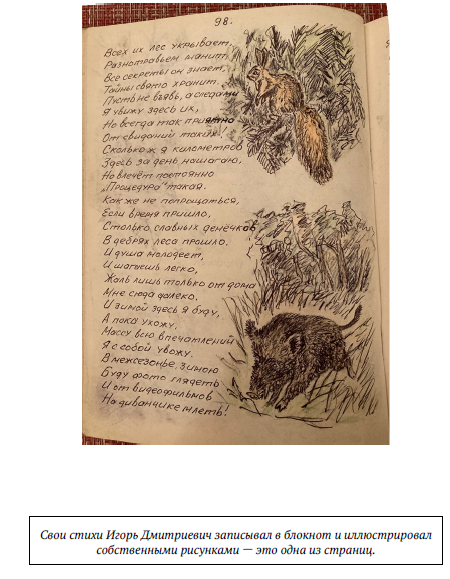 98.
Всех их лес укрывает.
Разнотравьем манит,
Все секреты он знает,
Тайны свято хранит.
Пусть не въявь, а следами
Я увижу здесь их,
Но всегда так приятно
От свиданий таких!
Сколько ж я километров
Здесь за день нашагаю,
Но влечёт постоянно
„Процедура" такая.
Как же не попрощаться,
Если время пришло,
Столько славных денёчков
В дебрях леса прошло.
И душа молодеет,
И шагаешь легко,
Жаль лишь только от дома
Мне сюда далеко.
И зимой здесь я буду,
А пока ухожу.
Массу всю впечатлений
Я с собой увожу.
В межсезонье, зимою
Буду фото глядеть
И от видеофильмов
На диванчике млеть!
Свои стихи Игорь Дмитриевич записывал в блокнот и иллюстрировал
собственными рисунками — это одна из страниц.